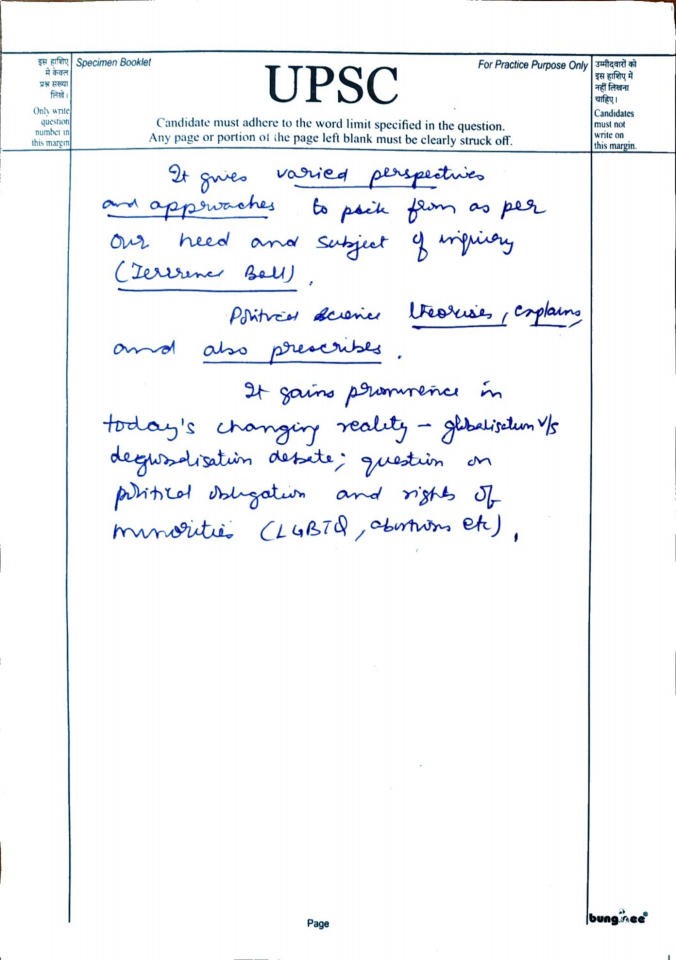 इस हाशिए
में केवल
प्रश्न संख्या
लिखें।
Only write
question
number in
this margin
Specimen Booklet
UPSC
For Practice Purpose Only
Candidate must adhere to the word limit specified in the question.
Any page or portion of the page left blank must be clearly struck off.
उम्मीदवारों को
इस हाशिए में
नहीं लिखना
चाहिए।
Candidates
must not
write on
this margin.
It gives varied perspectives
and approaches to pick from as per
our need and subject of inquiry
(Terrence Ball).
Political Science theorises, explains
and also prescribes.
It gains prominence in
today's changing reality – globalisation v/s
deglobalisation debate; question on
political obligation and rights of
minorities (LGBTQ, abortions etc).
Page
bungee